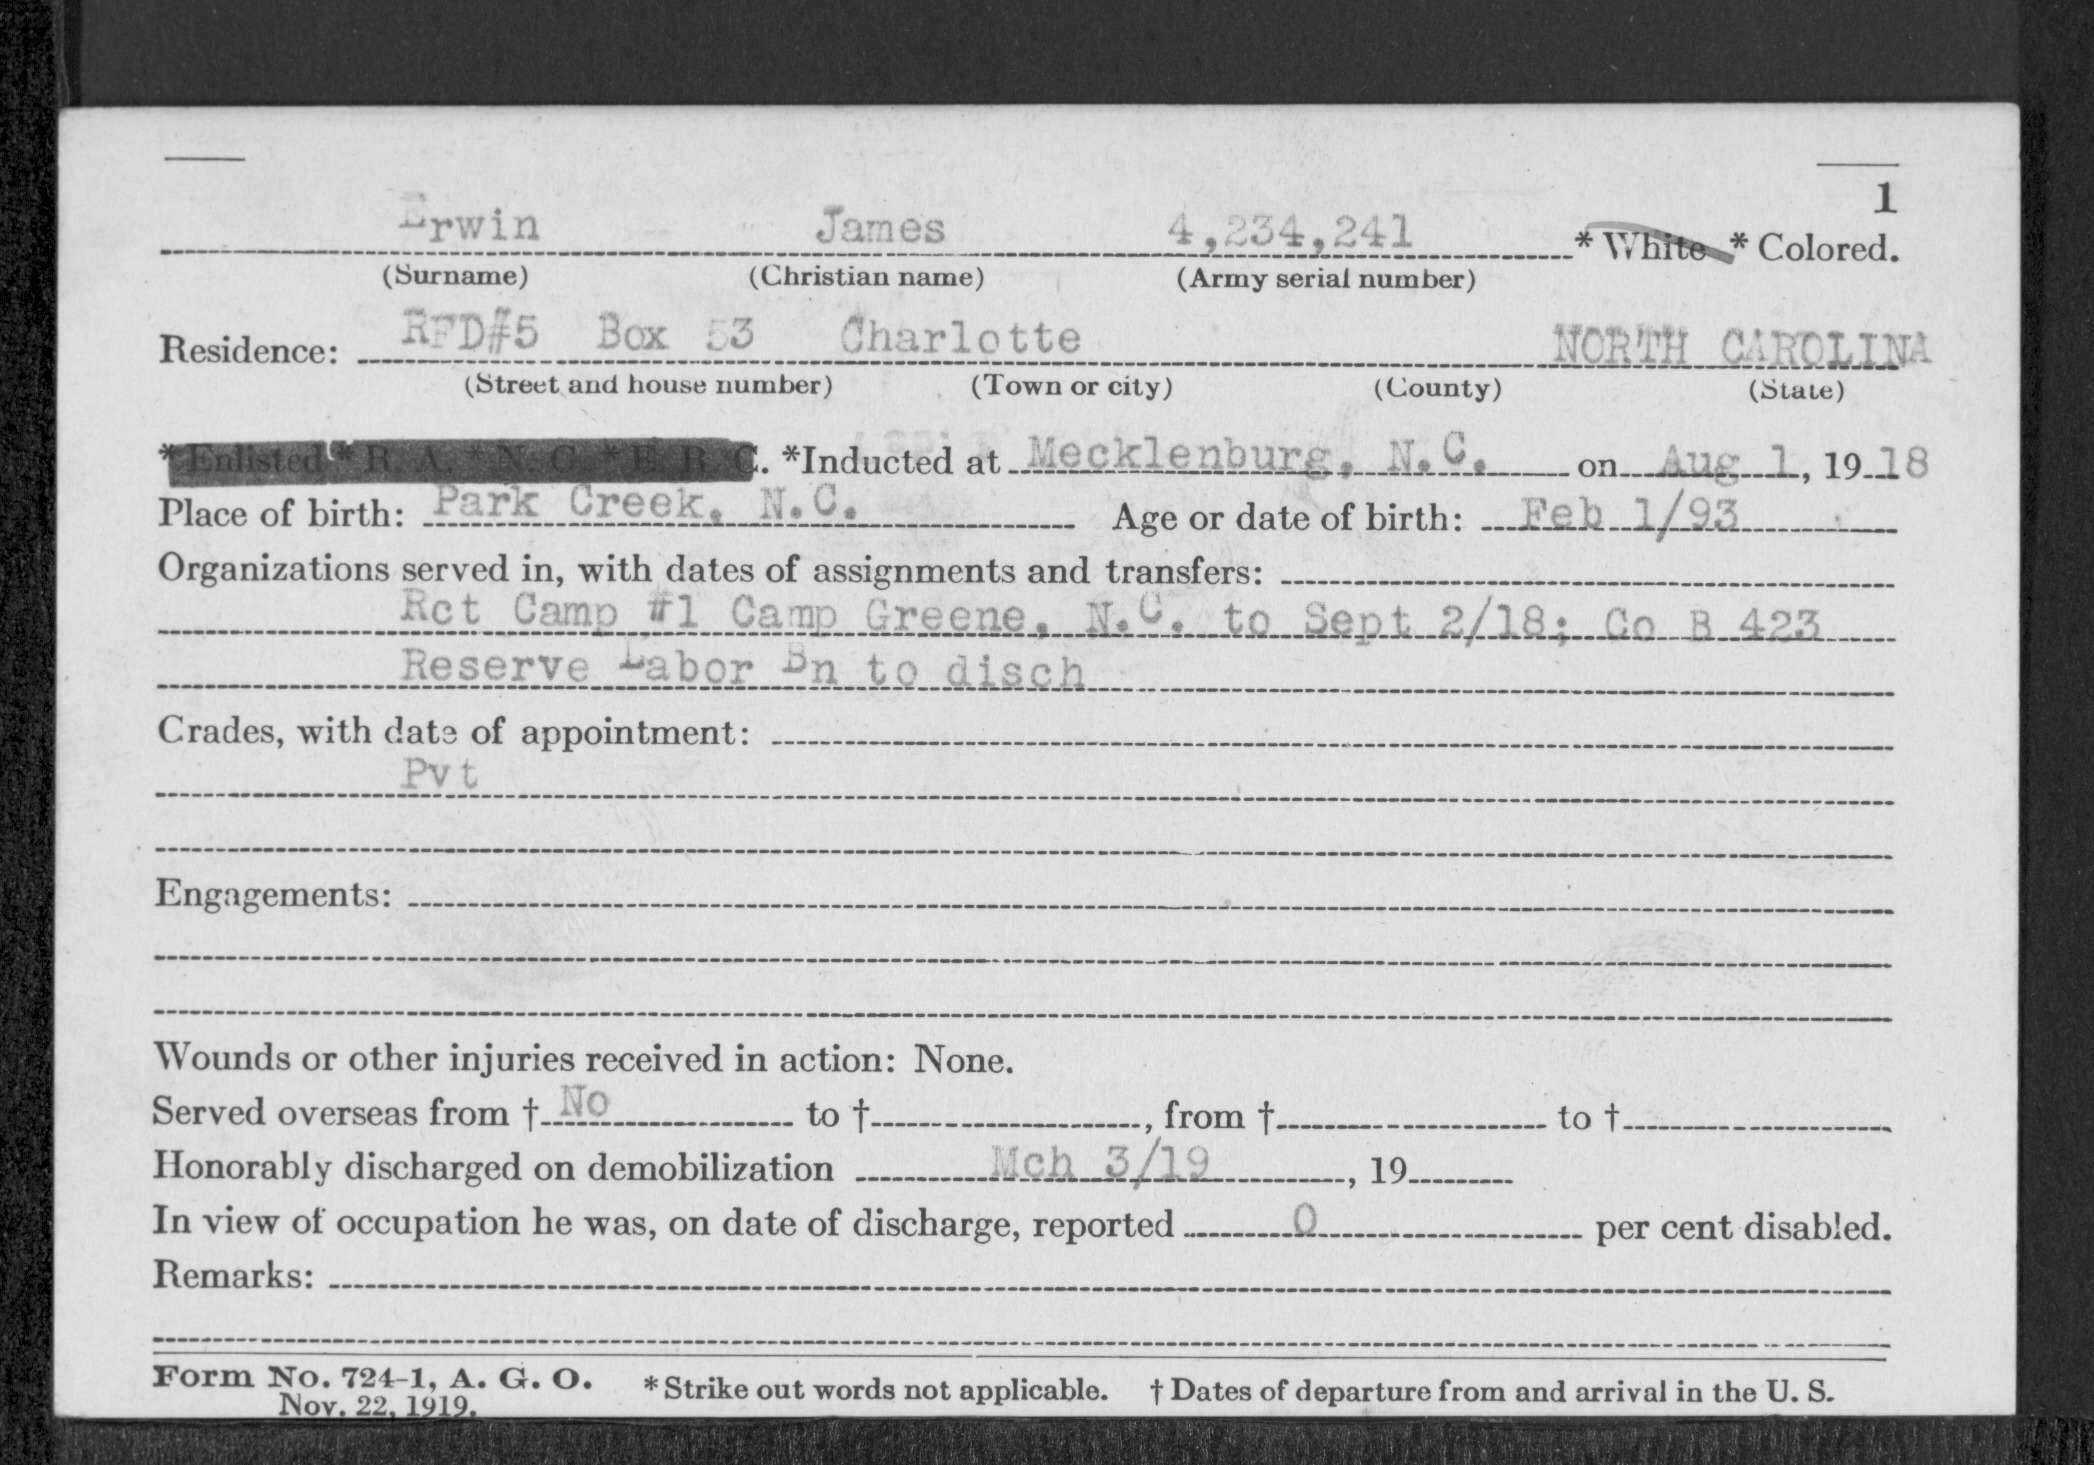 1
Erwin James 4,234,241 * White * Colored.
(Surname) (Christian name) (Army serial number)
Residence: RFD#5 Box 53 Charlotte NORTH CAROLINA
(Street and house number) (Town or city) (County) (State)
*Enlisted * R. A. * N. G. * E. R. C. *Inducted at Mecklenburg, N.C. on Aug 1, 19 18
Place of birth: Park Creek, N.C. Age or date of birth: Feb 1/93
Organizations served in, with dates of assignments and transfers:
Rct Camp #1 Camp Greene, N.C. to Sept 2/18; Co B 423
Reserve Labor Bn to disch
Grades, with date of appointment:
Pvt
Engagements:
Wounds or other injuries received in action: None.
Served overseas from † No to † , from † to †
Honorably discharged on demobilization Mch 3/19 , 19
In view of occupation he was, on date of discharge, reported 0 per cent disabled.
Remarks:
Form No. 724-1, A. G. O. *Strike out words not applicable. † Dates of departure from and arrival in the U. S.
Nov. 22, 1919.